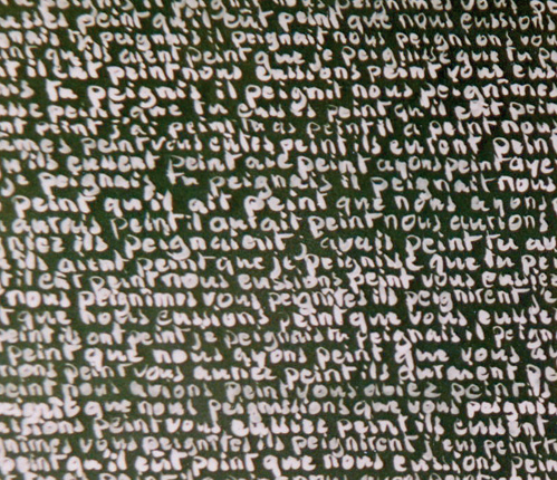 peint qu'il eût peint que nous eussions
peignis il peignait nous peignions vo
ils aient peint que je peignisse que tu p
il eût peint nous eussions peint vous eu
tu peignis il peignit nous peignîmes
peint que tu eusses peint qu'il eût pei
peint j'ai peint tu as peint il a peint nou
mes peint vous eûtes peint ils eurent peint
ils eussent peint que peint ayons peint aye
peignais tu peignais il peignait nous
peint qu'il ait peint que nous ayons
aurais peint il aurait peint nous aurions
niez ils peignaient j'avais peint tu av
aient peint que je peignisse que tu pe
il eût peint nous eussions peint vous eus
nous peignîmes vous peignîtes ils peignirent
que nous eussions peint que vous eusse
peint ils ont peint je peignais tu peignais il peign
peint que nous ayons peint que vous a
ons peint vous aurez peint ils auraient pe
peint nous avions peint vous aviez peint
peignît que nous peignissions que vous peign
ions peint vous eussiez peint ils eussent
nîmes vous peignîtes ils peignirent j'eus peint
peint qu'il eût peint que nous eussions pein